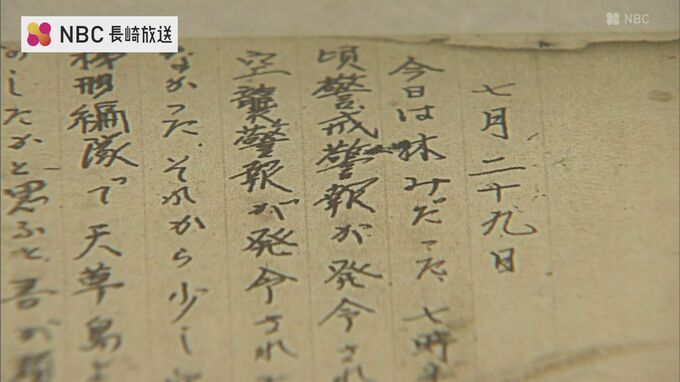 NBC 長崎放送
NBC
七月二十九日
今日は休みだった、七時
頃警戒警報が発令され
空襲警報が発令され
なかった。それから少し
梯形編隊で天草島
したかと思ふと、吾が